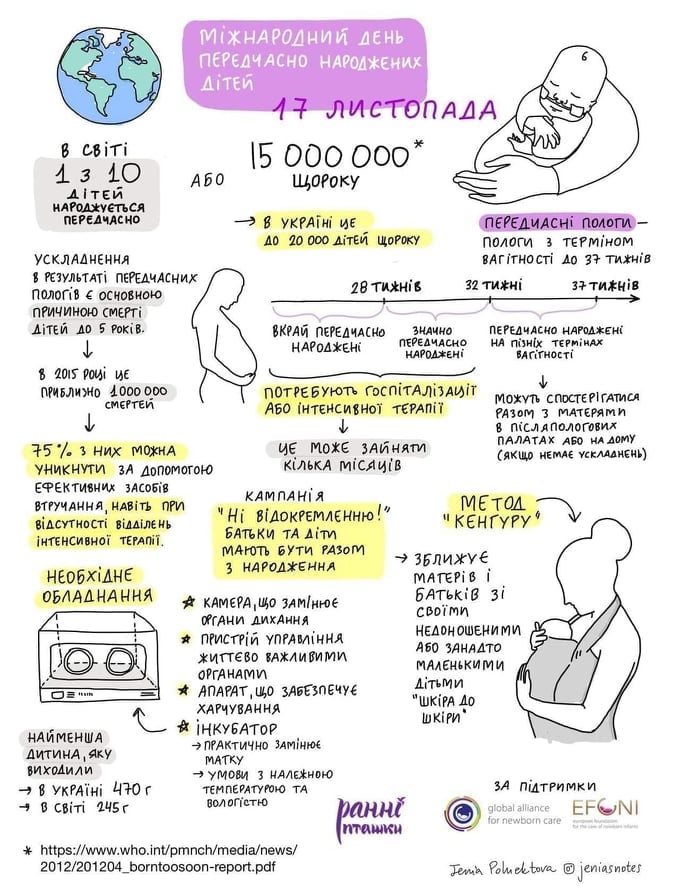 МІЖНАРОДНИЙ ДЕНЬ
ПЕРЕДЧАСНО НАРОДЖЕНИХ
ДІТЕЙ
17 ЛИСТОПАДА
В СВІТІ
1 З 10
ДІТЕЙ
НАРОДЖУЄТЬСЯ
ПЕРЕДЧАСНО
АБО
15 000 000*
ЩОРОКУ
→ В УКРАЇНІ ЦЕ
ДО 20 000 ДІТЕЙ ЩОРОКУ
ПЕРЕДЧАСНІ ПОЛОГИ –
ПОЛОГИ З ТЕРМІНОМ
ВАГІТНОСТІ ДО 37 ТИЖНІВ
УСКЛАДНЕННЯ
В РЕЗУЛЬТАТІ ПЕРЕДЧАСНИХ
ПОЛОГІВ Є ОСНОВНОЮ
ПРИЧИНОЮ СМЕРТІ
ДІТЕЙ ДО 5 РОКІВ.
↓
В 2015 РОЦІ ЦЕ
ПРИБЛИЗНО 1000 000
СМЕРТЕЙ
↓
75% З НИХ МОЖНА
УНИКНУТИ ЗА ДОПОМОГОЮ
ЕФЕКТИВНИХ ЗАСОБІВ
ВТРУЧАННЯ, НАВІТЬ ПРИ
ВІДСУТНОСТІ ВІДДІЛЕНЬ
ІНТЕНСИВНОЇ ТЕРАПІЇ.
28 ТИЖНІВ
32 ТИЖНІ
37 ТИЖНІВ
ВКРАЙ ПЕРЕДЧАСНО
НАРОДЖЕНІ
ЗНАЧНО
ПЕРЕДЧАСНО
НАРОДЖЕНІ
ПЕРЕДЧАСНО НАРОДЖЕНІ
НА ПІЗНІХ ТЕРМІНАХ
ВАГІТНОСТІ
ПОТРЕБУЮТЬ ГОСПІТАЛІЗАЦІЇ
АБО ІНТЕНСИВНОЇ ТЕРАПІЇ
↓
ЦЕ МОЖЕ ЗАЙНЯТИ
КІЛЬКА МІСЯЦІВ
↓
МОЖУТЬ СПОСТЕРІГАТИСЯ
РАЗОМ З МАТЕРЯМИ
В ПІСЛЯПОЛОГОВИХ
ПАЛАТАХ АБО НА ДОМУ
(ЯКЩО НЕМАЄ УСКЛАДНЕНЬ)
КАМПАНІЯ
"НІ ВІДОКРЕМЛЕННЮ!"
БАТЬКИ ТА ДІТИ
МАЮТЬ БУТИ РАЗОМ
З НАРОДЖЕННЯ
МЕТОД
"КЕНГУРУ"
→ ЗБЛИЖУЄ
МАТЕРІВ І
БАТЬКІВ ЗІ
СВОЇМИ
НЕДОНОШЕНИМИ
АБО ЗАНАДТО
МАЛЕНЬКИМИ
ДІТЬМИ
"ШКІРА ДО
ШКІРИ"
НЕОБХІДНЕ
ОБЛАДНАННЯ
★ КАМЕРА, ЩО ЗАМІНЮЄ
ОРГАНИ ДИХАННЯ
★ ПРИСТРІЙ УПРАВЛІННЯ
ЖИТТЄВО ВАЖЛИВИМИ
ОРГАНАМИ
★ АПАРАТ, ЩО ЗАБЕЗПЕЧУЄ
ХАРЧУВАННЯ
★ ІНКУБАТОР
→ ПРАКТИЧНО ЗАМІНЮЄ
МАТКУ
→ УМОВИ З НАЛЕЖНОЮ
ТЕМПЕРАТУРОЮ ТА
ВОЛОГІСТЮ
НАЙМЕНША
ДИТИНА, ЯКУ
ВИХОДИЛИ
→ В УКРАЇНІ 470 г
→ В СВІТІ 245 г
ранні
пташки
ЗА ПІДТРИМКИ
global alliance
for newborn care
EFCNI
european foundation
for the care of newborn infants
* https://www.who.int/pmnch/media/news/
2012/201204_borntoosoon-report.pdf
Jenia Poluektova @jeniasnotes